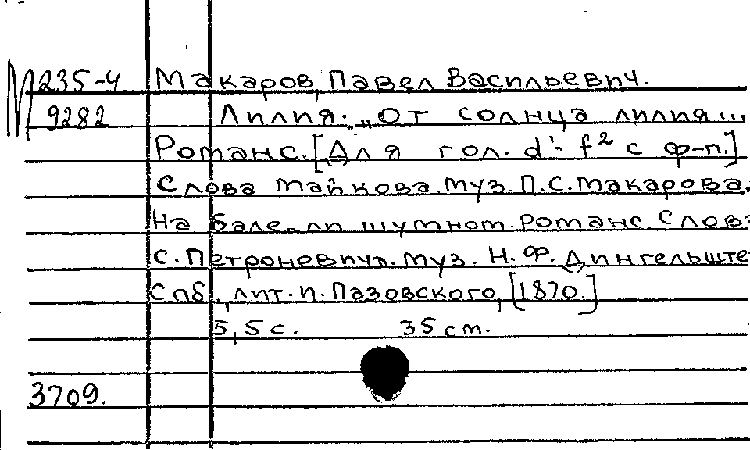 М 235-4 Макаров, Павел Васильевич.
9282 Лилия. „От солнца лилия...
Романс. [Для гол. d¹- f² с ф-п.]
Слова Майкова. Муз. П.С. Макарова.
На бале-ли шумном. Романс. Слова
С. Петроневич. Муз. Н.Ф. Дингельште
Спб., лит. П. Пазовского, [1870.]
5,5 с. 35 см.
3709.